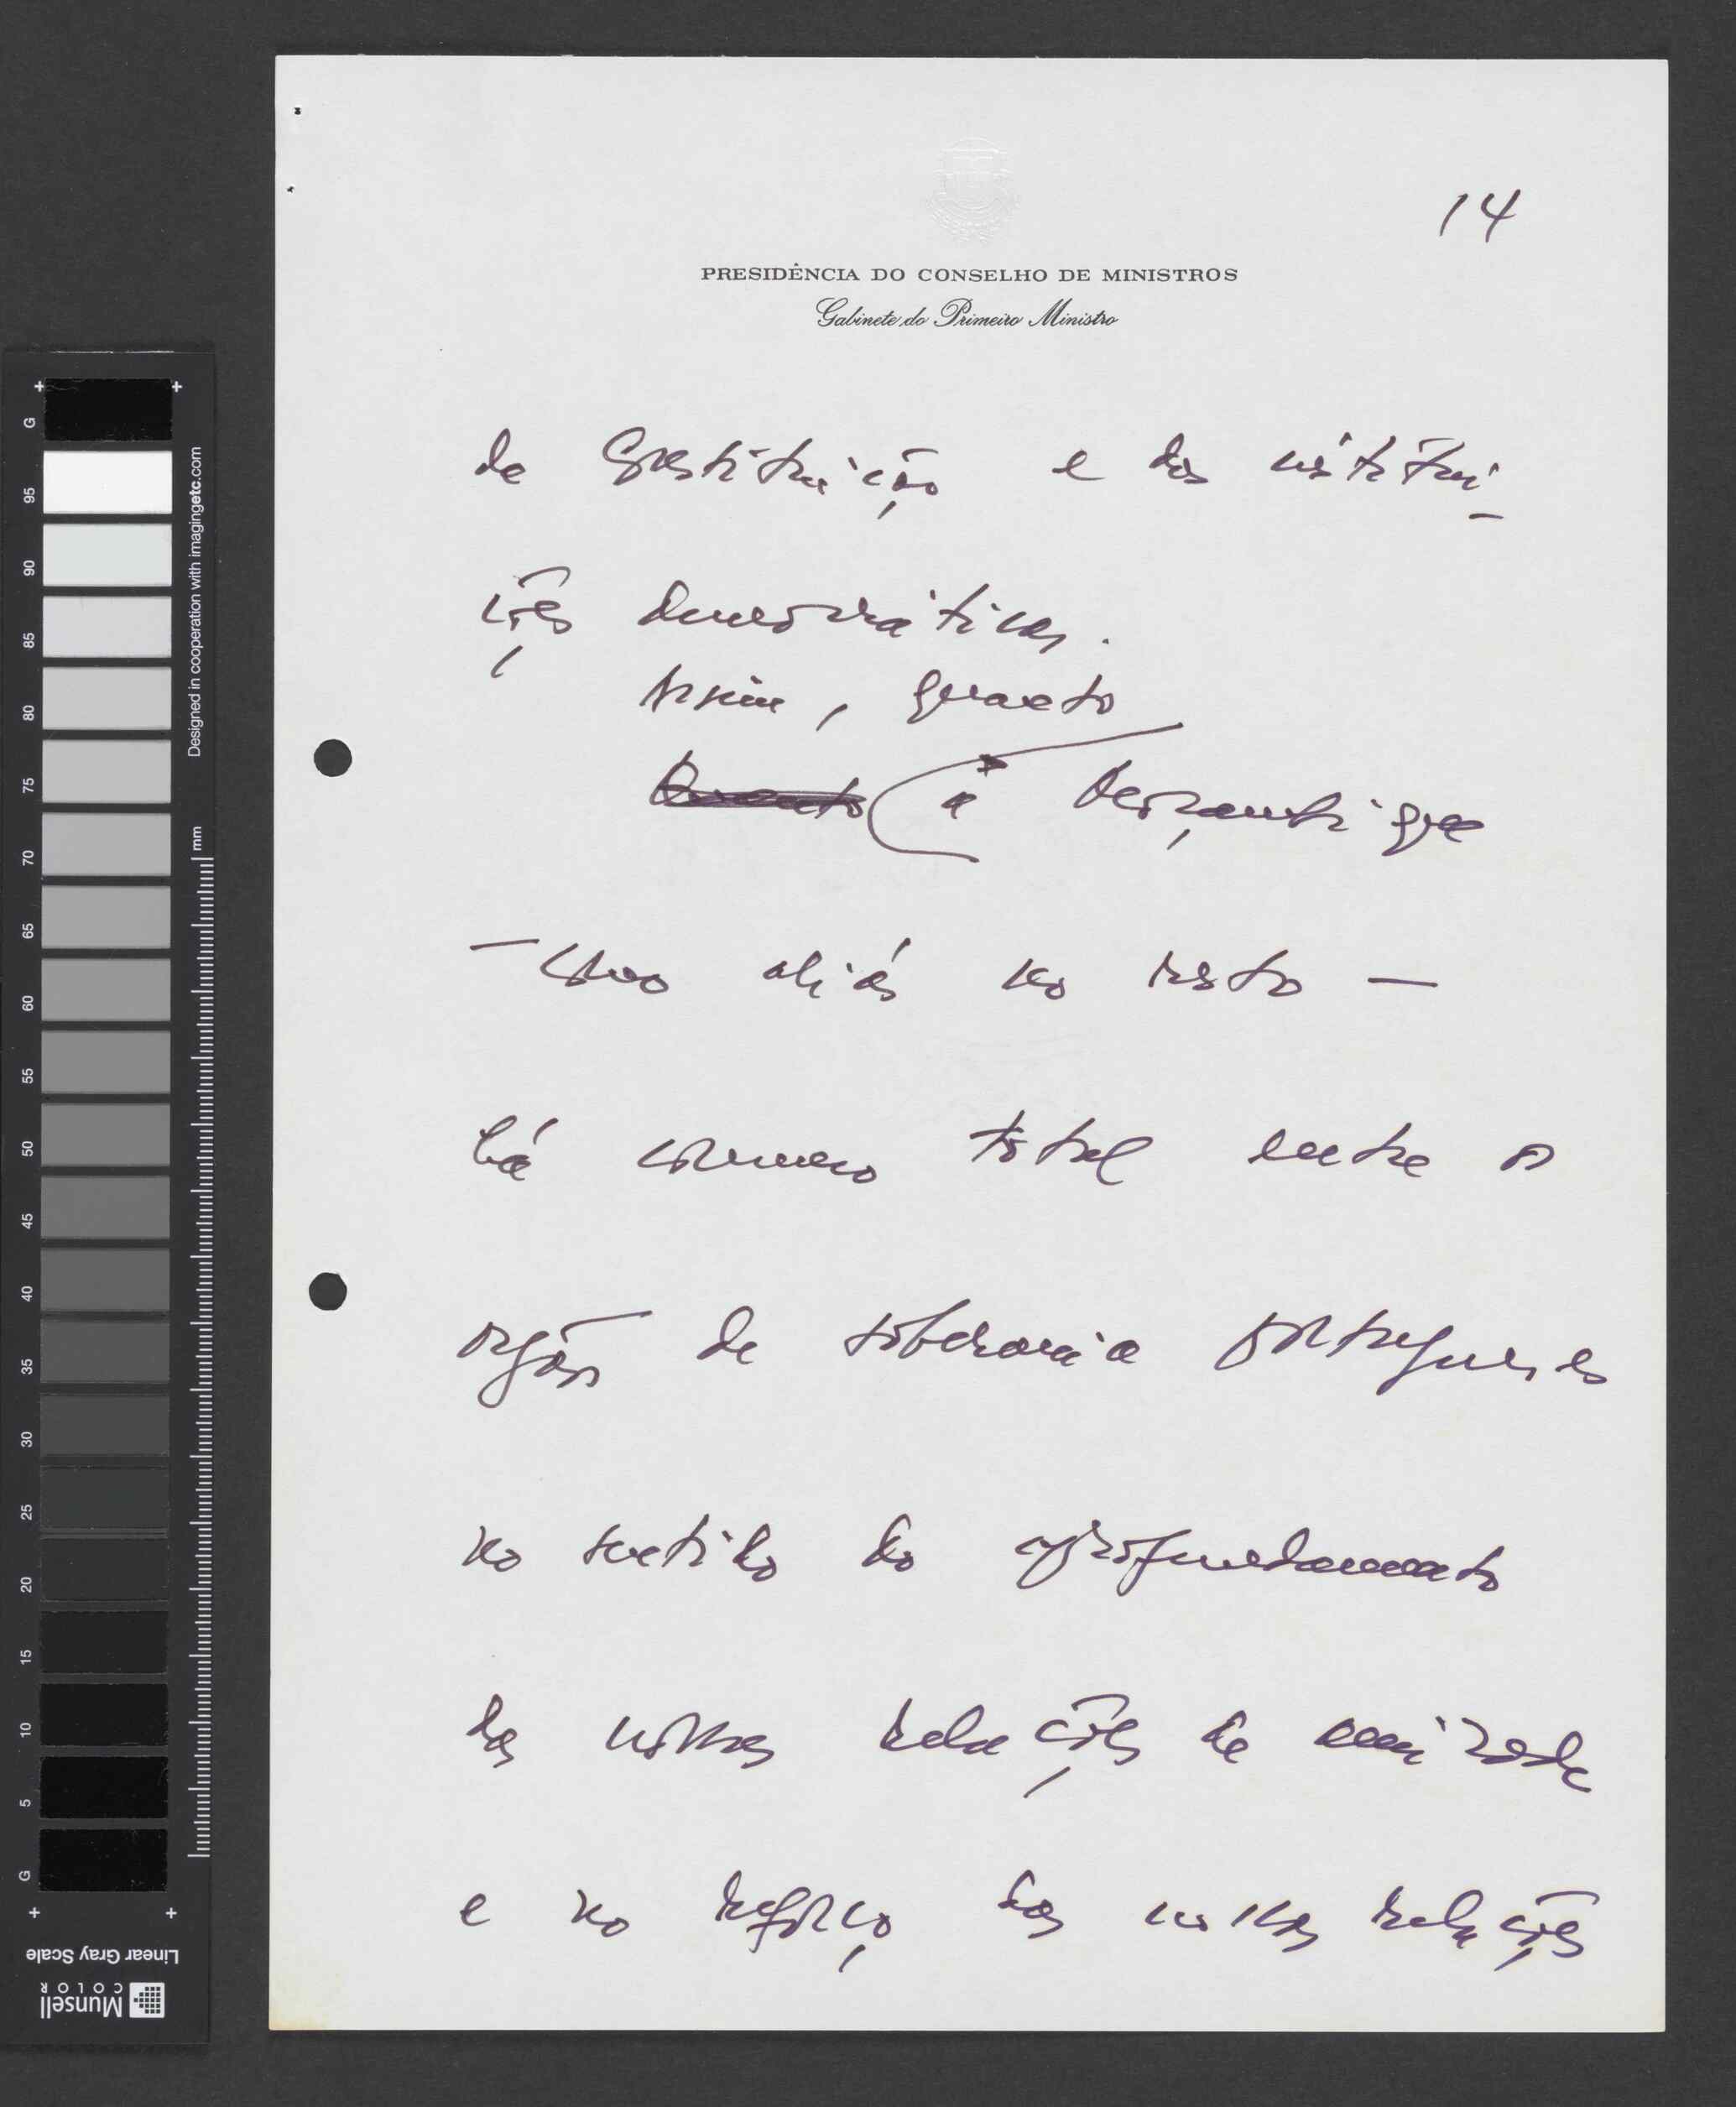 14
PRESIDÊNCIA DO CONSELHO DE MINISTROS
Gabinete do Primeiro Ministro
da Constituição e das institui-
ções democráticas.
Assim, quanto
Quanto a
— como aliás no resto —
há consenso total entre os
orgãos de soberania portugueses
no sentido do aprofundamento
das nossas relações de amizade
e no reforço das nossas relações
G 95 90 85 80 75 70 65 60 55 50 45 40 35 30 25 20 15 10 5 G
Designed in cooperation with imagingetc.com
mm
Linear Gray Scale
Munsell
COLOR